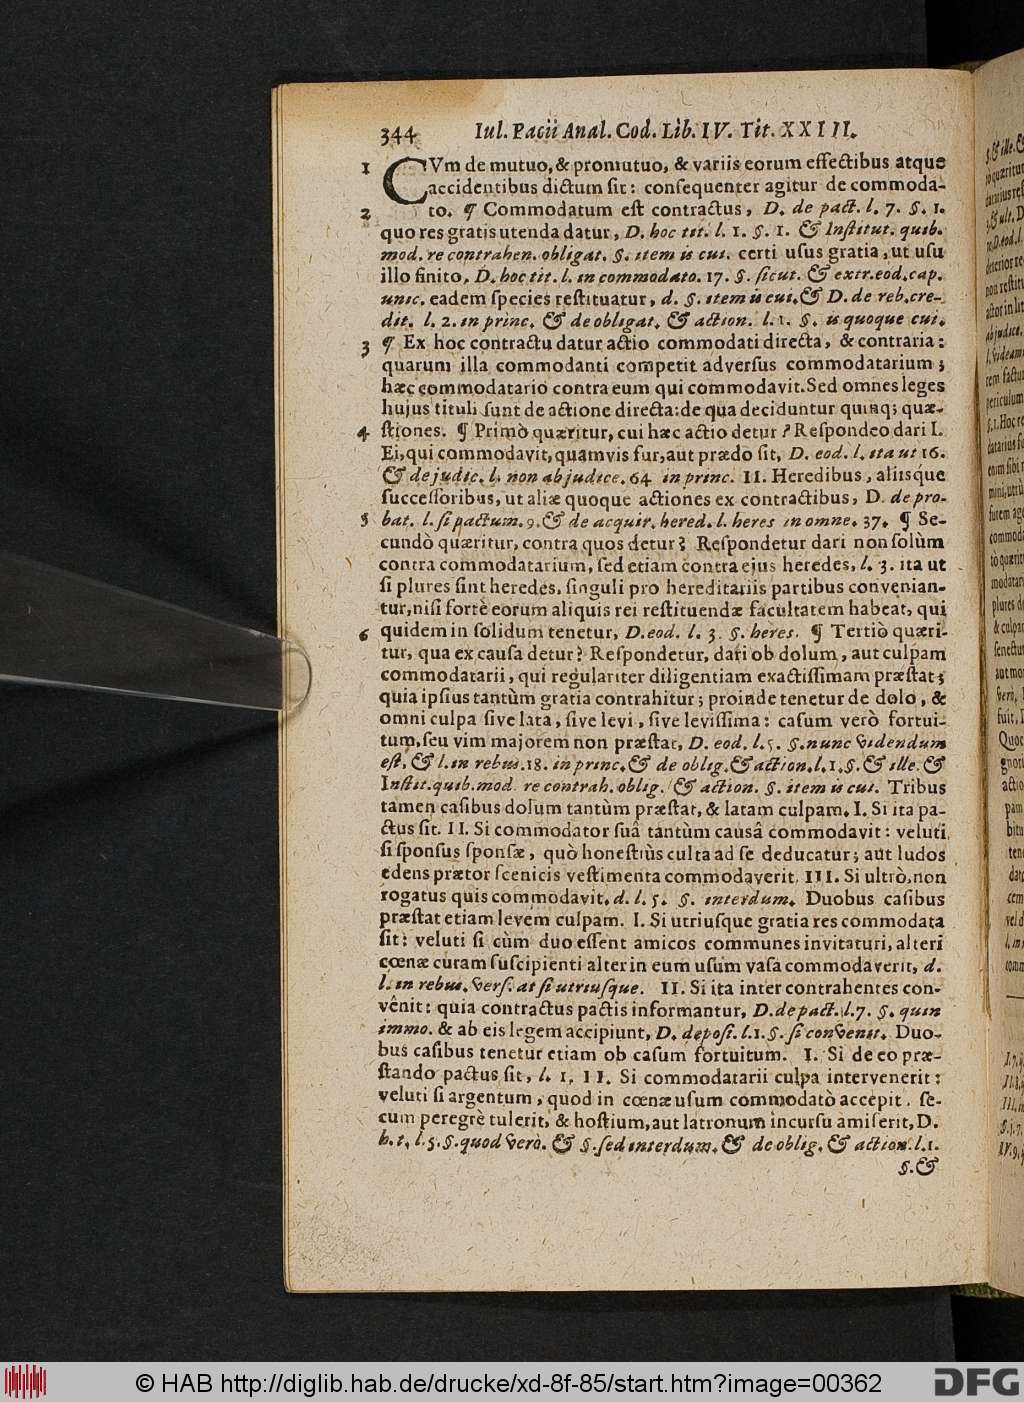 344 Iul. Pacii Anal. Cod. Lib. IV. Tit. XXIII.
1 CVm de mutuo, & promutuo, & variis eorum effectibus atque
accidentibus dictum sit: consequenter agitur de commoda-
2 to. ¶ Commodatum est contractus, D. de pact. l. 7. §. 1.
quo res gratis utenda datur, D. hoc tit. l. 1. §. 1. & Institut. quib.
mod. re contrahen. obligat. §. item is cui. certi usus gratia, ut usu
illo finito, D. hoc tit. l. in commodato. 17. §. sicut. & extr. eod. cap.
unic. eadem species restituatur, d. §. item is cui. & D. de reb. cre-
dit. l. 2. in princ. & de obligat. & action. l. 1. §. is quoque cui.
3 ¶ Ex hoc contractu datur actio commodati directa, & contraria:
quarum illa commodanti competit adversus commodatarium;
hæc commodatario contra eum qui commodavit. Sed omnes leges
hujus tituli sunt de actione directa: de qua deciduntur quinq; quæ-
4 stiones. ¶ Primò quæritur, cui hæc actio detur? Respondeo dari I.
Ei, qui commodavit, quamvis fur, aut prædo sit, D. eod. l. ita ut 16.
& de judic. l. non ab judice. 64 in princ. II. Heredibus, aliisque
successoribus, ut aliæ quoque actiones ex contractibus, D. de pro-
5 bat. l. si pactum. 9. & de acquir. hered. l. heres in omne. 37. ¶ Se-
cundò quæritur, contra quos detur? Respondetur dari non solùm
contra commodatarium, sed etiam contra ejus heredes, l. 3. ita ut
si plures sint heredes, singuli pro hereditariis partibus convenian-
tur, nisi fortè eorum aliquis rei restituendæ facultatem habeat, qui
6 quidem in solidum tenetur, D. eod. l. 3. §. heres. ¶ Tertiò quæri-
tur, qua ex causa detur? Respondetur, dari ob dolum, aut culpam
commodatarii, qui regulariter diligentiam exactissimam præstat;
quia ipsius tantùm gratia contrahitur; proinde tenetur de dolo, &
omni culpa sive lata, sive levi, sive levissima: casum verò fortui-
tum, seu vim majorem non præstat, D. eod. l. 5. §. nunc videndum
est, & l. in rebus. 18. in princ. & de oblig. & action. l. 1. §. & ille. &
Instit. quib. mod. re contrah. oblig. & action. §. item is cui. Tribus
tamen casibus dolum tantùm præstat, & latam culpam. I. Si ita pa-
ctus sit. II. Si commodator suâ tantùm causâ commodavit: veluti
si sponsus sponsæ, quò honestiùs culta ad se deducatur; aut ludos
edens prætor scenicis vestimenta commodaverit. III. Si ultrò, non
rogatus quis commodavit, d. l. 5. §. interdum. Duobus casibus
præstat etiam levem culpam. I. Si utriusque gratia res commodata
sit: veluti si cùm duo essent amicos communes invitaturi, alteri
cœnæ curam suscipienti alter in eum usum vasa commodaverit, d.
l. in rebus. vers. at si utriusque. II. Si ita inter contrahentes con-
vênit: quia contractus pactis informantur, D. de pact. l. 7. §. quin
immo. & ab eis legem accipiunt, D. deposi. l. 1. §. si convenit. Duo-
bus casibus tenetur etiam ob casum fortuitum. I. Si de eo præ-
stando pactus sit, l. 1. II. Si commodatarii culpa intervenerit:
veluti si argentum, quod in cœnæ usum commodatò accepit, se-
cum peregrè tulerit, & hostium, aut latronum incursu amiserit, D.
h. t. l. 5. §. quod verò. & §. sed interdum. & de oblig. & action. l. 1.
§. &
© HAB http://diglib.hab.de/drucke/xd-8f-85/start.htm?image=00362
DFG